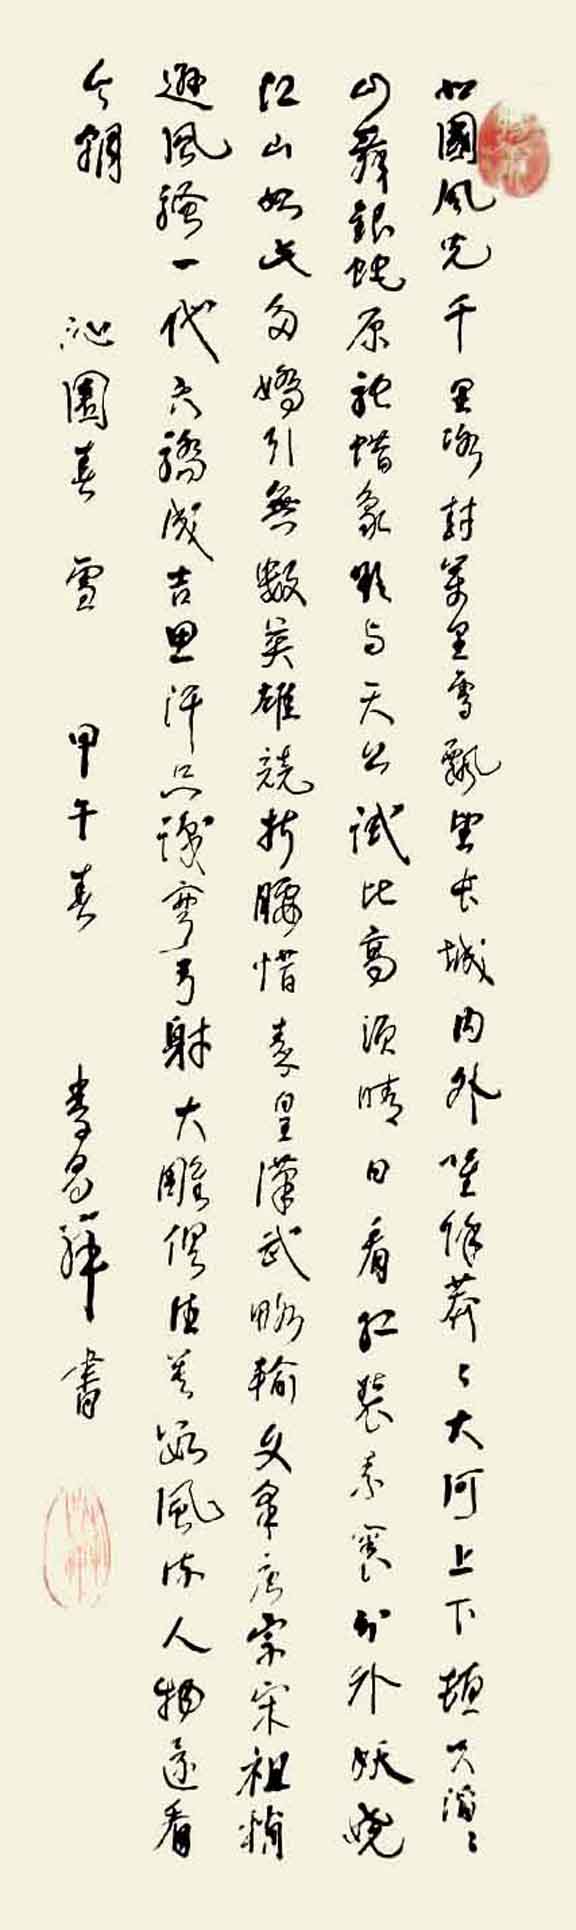 北國風光千里冰封萬里雪飄望長城内外唯餘莽〻大河上下頓失滔〻
山舞銀蛇原馳蜡象欲与天公試比高須晴日看紅裝素裹分外妖嬈
江山如此多嬌引無數英雄競折腰惜秦皇漢武略輸文采唐宗宋祖稍
遜風騷一代天驕成吉思汗只識彎弓射大雕俱往矣數風流人物還看
今朝 沁園春 雪 甲午春 李昌 書